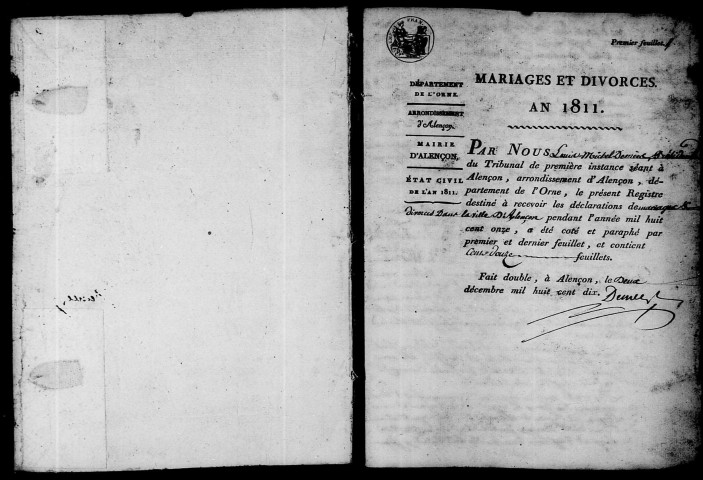 Premier feuillet.
DÉPARTEMENT
DE L'ORNE.
ARRONDISSEMENT
d'Alençon.
MAIRIE
D'ALENÇON.
ÉTAT CIVIL
DE L'AN 1811.
MARIAGES ET DIVORCES.
AN 1811.
PAR NOUS Louis Michel
du Tribunal de première instance séant à
Alençon, arrondissement d'Alençon, dé-
partement de l'Orne, le présent Registre
destiné à recevoir les déclarations de mariages &
divorces dans la ville d'Alençon pendant l'année mil huit
cent onze, a été coté et paraphé par
premier et dernier feuillet, et contient
Cent Douze feuillets.
Fait double, à Alençon, le Deux
décembre mil huit cent dix.